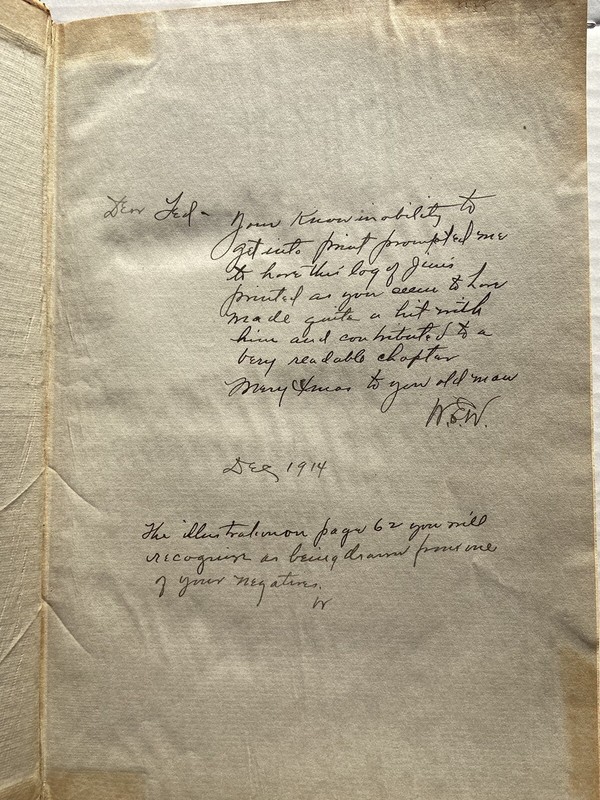 Dear Ted- Your Known inability to
get into print prompted me
to have this log of Jim's
printed as you seem to have
made quite a hit with
him and contributed to a
very readable chapter
Merry Xmas to you old man
W.E.W.
Dec 1914
The illustration on page 62 you will
recognize as being drawn from one
of your negatives.
W